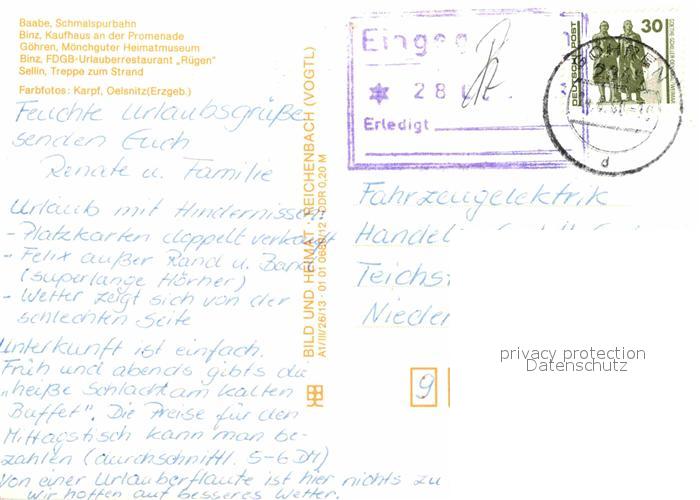 Baabe, Schmalspurbahn
Binz, Kaufhaus an der Promenade
Göhren, Mönchguter Heimatmuseum
Binz, FDGB-Urlauberrestaurant „Rügen"
Sellin, Treppe zum Strand
Farbfotos: Karpf, Oelsnitz(Erzgeb.)
Feuchte Urlaubsgrüße
senden Euch
Renate u. Familie
Urlaub mit Hindernissen:
- Platzkarten doppelt verkauft
- Felix außer Rand u. Band
(superlange Hörner)
- Wetter zeigt sich von der
schlechten Seite
Unterkunft ist einfach.
Früh und abends gibts die
„heiße Schlacht am kalten
Buffet". Die Preise für den
Mittagstisch kann man be-
zahlen (durchschnittl. 5-6 DM)
Von einer Urlauberflaute ist hier nichts zu
Wir hoffen auf besseres Wetter.
BILD UND HEIMAT · REICHENBACH (VOGTL)
A1/III/26/13 · 01 01 0689/12 DDR 0,20 M
Eingeg
28
Erledigt
DEUTSCHE POST
30
GÖHREN
d
Fahrzeugelektrik
Handel
Teichs
Nieder
9
privacy protection
Datenschutz